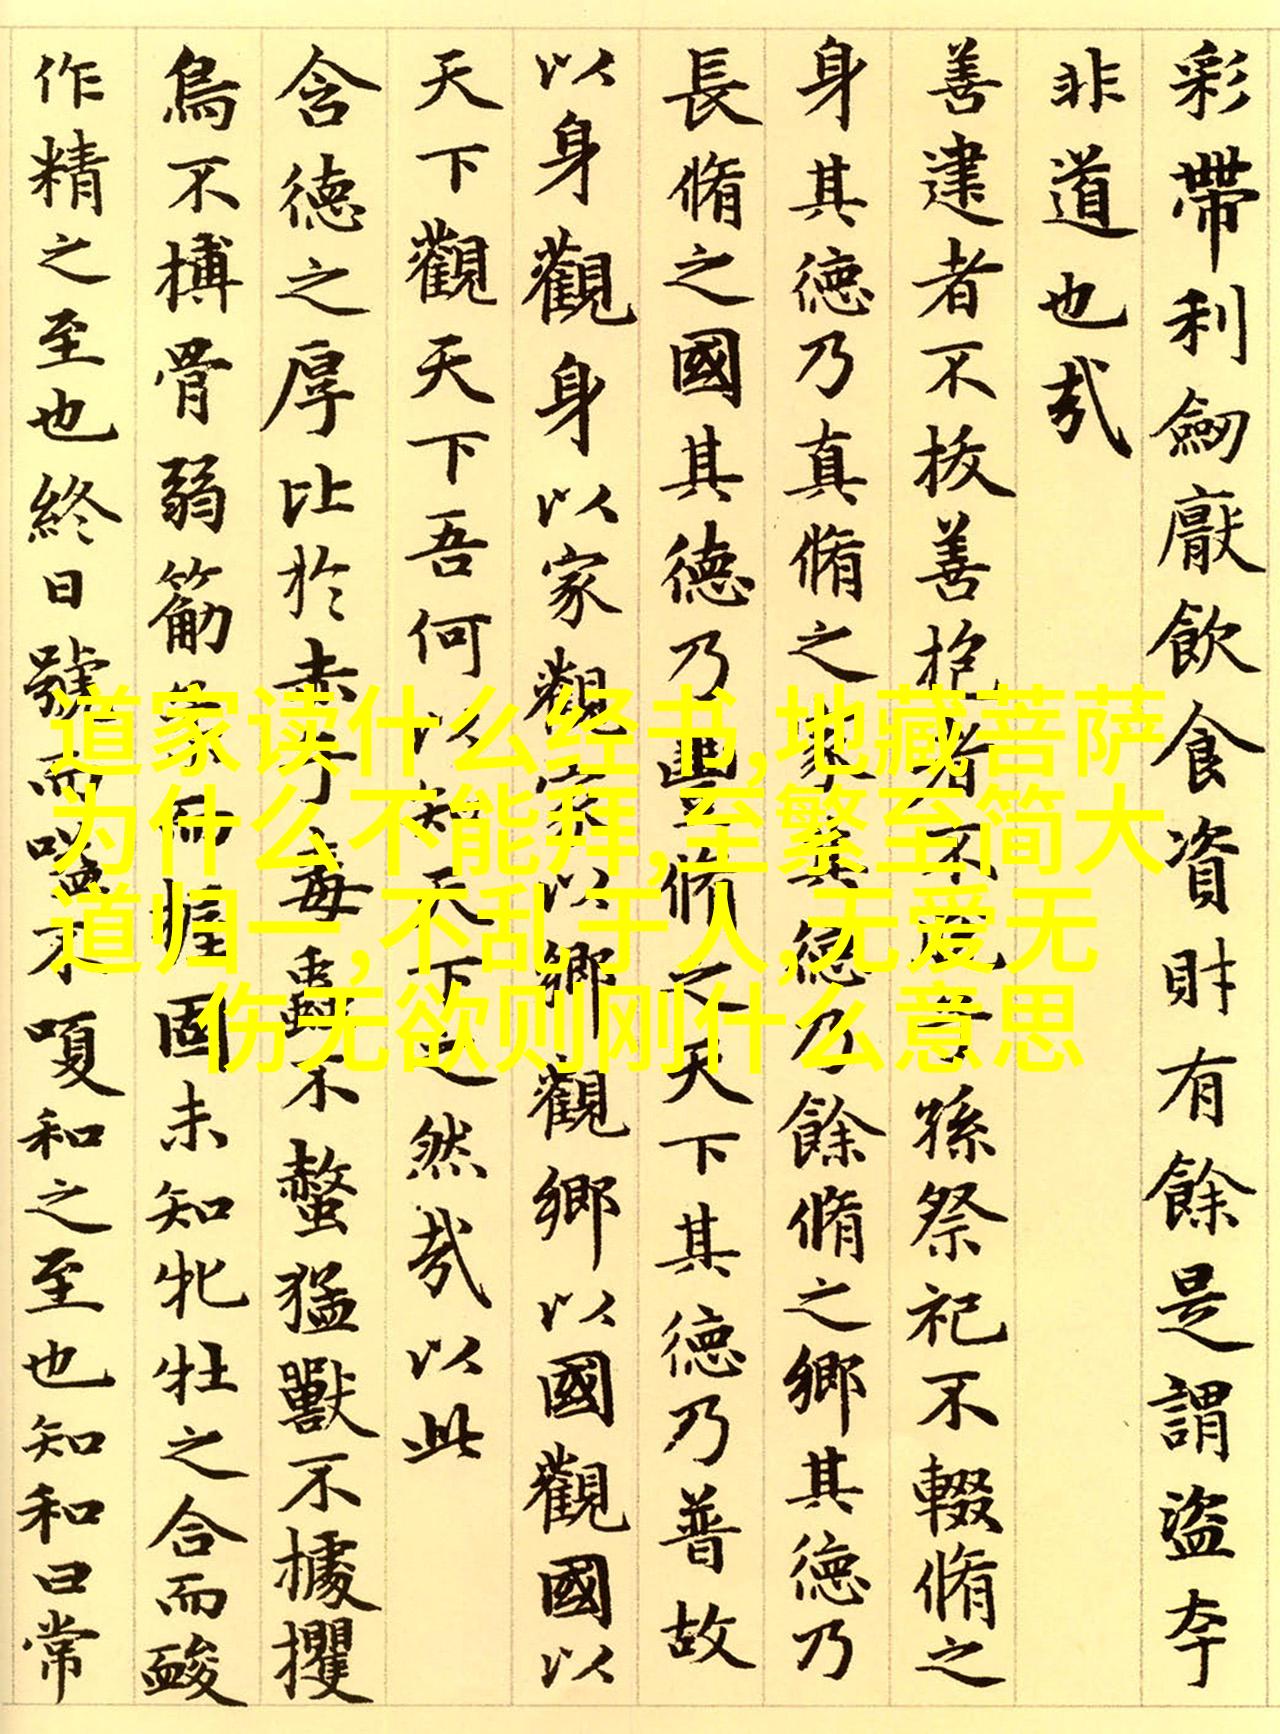 彩帶利劒厭飲食資財有餘是謂盜夸
非道也㢤
善建者不拔善抱者不脱子孫祭祀不輟脩之
身其德乃真脩之家其德乃餘脩之鄉其德乃
長脩之國其德乃豐脩之天下其德乃普故
以身觀身以家觀家以鄉觀鄉以國觀國以
天下觀天下吾何以知天下之然㢤以此
含德之厚比於赤子毒蟲不螫猛獸不據攫
鳥不搏骨弱筋柔而握固未知牝牡之合而酸
作精之至也終日號而嗌不嗄和之至也知和曰常
道家读什么经书,地藏菩萨
为什么不能拜,至繁至简大
道归一,不乱于人,无爱无
伤无欲则刚什么意思